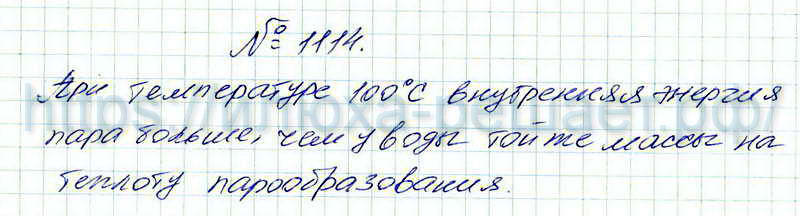 № 1114.
При температуре 100°С внутренняя энергия
пара больше, чем у воды той же массы на
теплоту парообразования.